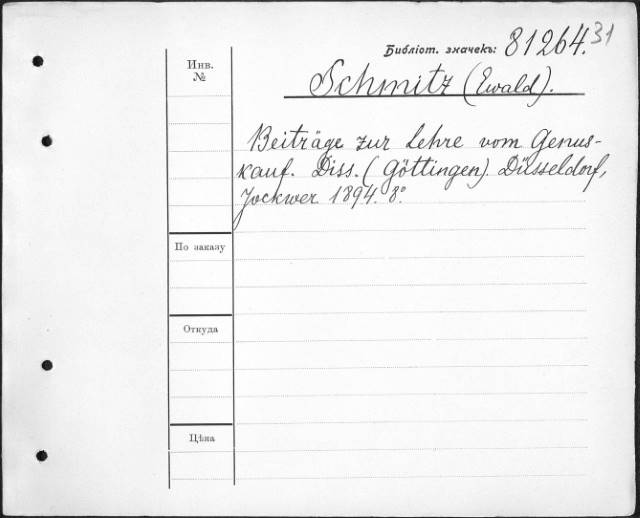 Библіот. значекъ: 81264.31
Инв. №
Schmitz (Ewald).
Beiträge zur Lehre vom Genus-
kauf. Diss. (Göttingen). Düsseldorf,
Jockwer 1894. 8°.
По заказу
Откуда
Цѣна